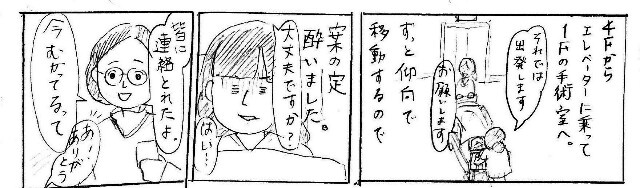 4Fから
エレベーターに乗って
1Fの手術室へ。
それでは
出発します
お願いします
ずっと仰向で
移動するので
案の定
酔いました。
大丈夫ですか?
はい…
皆に
連絡とれたよ。
今むかってるって
あー、
ありが
とう